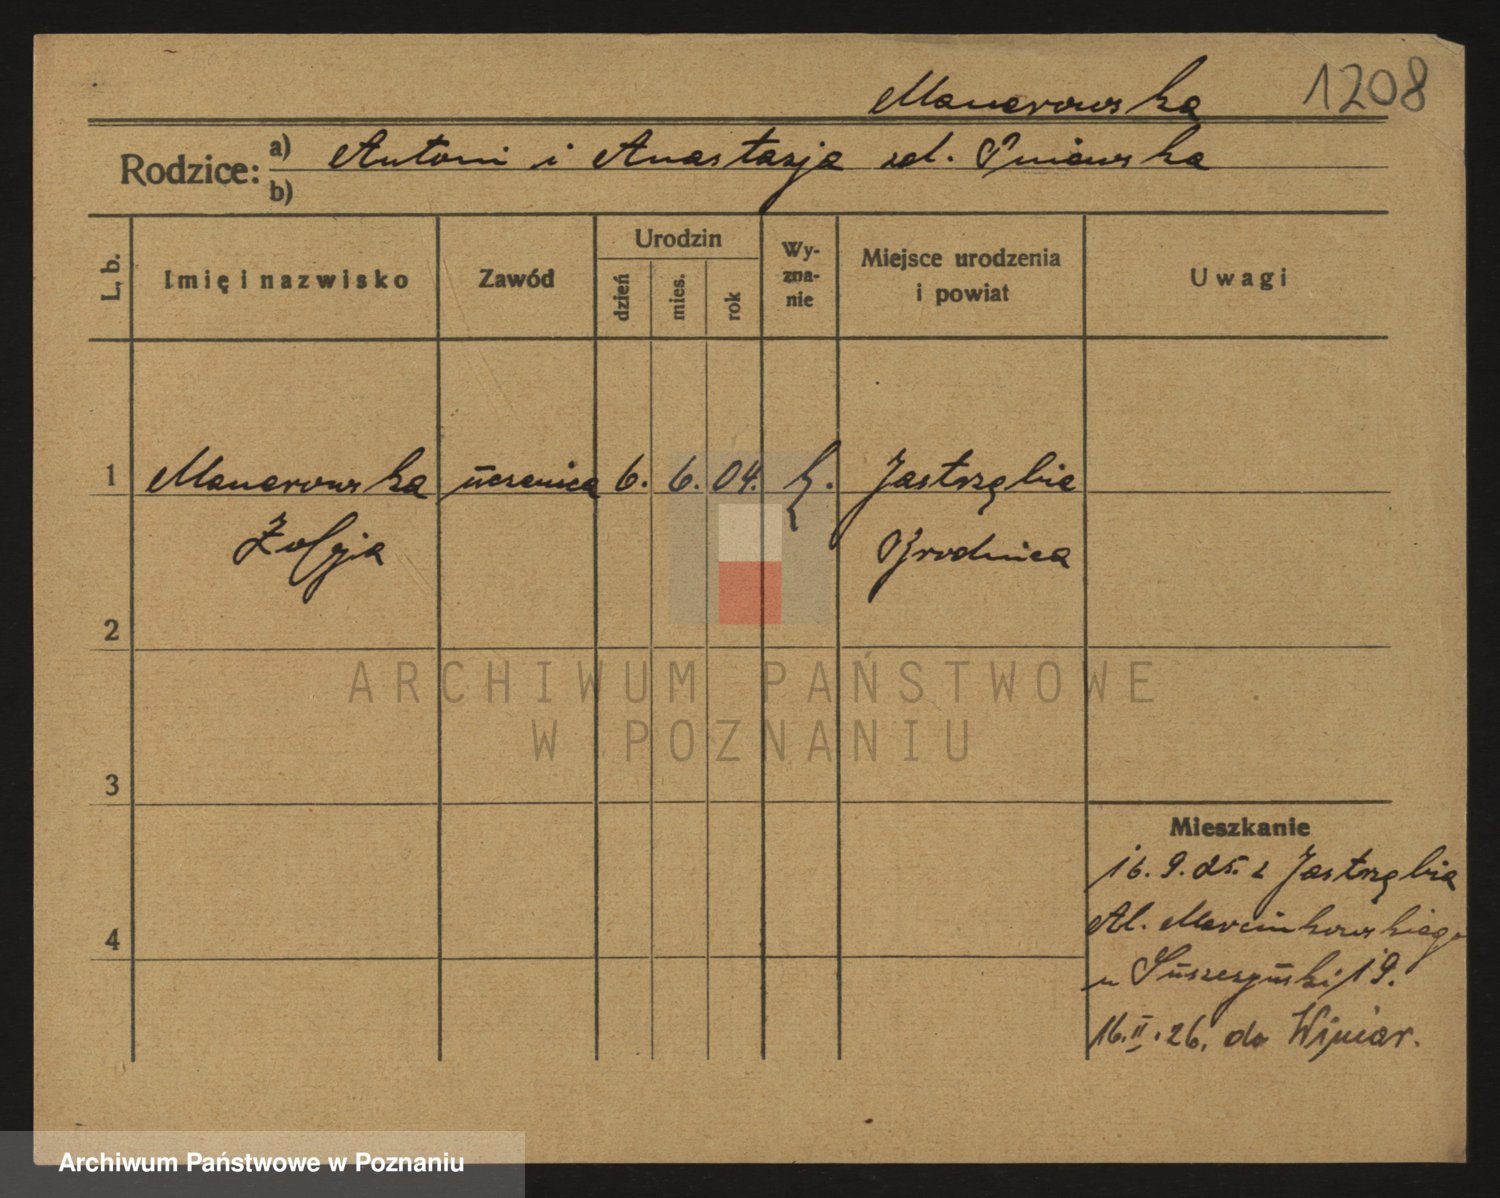 Manerowska 1208
Rodzice: a) Antoni i Anastazja zd. Pniewska
b)
L. b. Imię i nazwisko Zawód Urodzin dzień mies. rok Wy-zna-nie Miejsce urodzenia i powiat Uwagi
1 Manerowska uczenica 6. 6. 04. k. Jastrzębie
Zofja Brodnica
2
ARCHIWUM PAŃSTWOWE
W POZNANIU
3
Mieszkanie
16. 9. 25. z Jastrzębia
Al. Marcinkowskiego
4
u 19.
16.II.26. do Winiar.
Archiwum Państwowe w Poznaniu